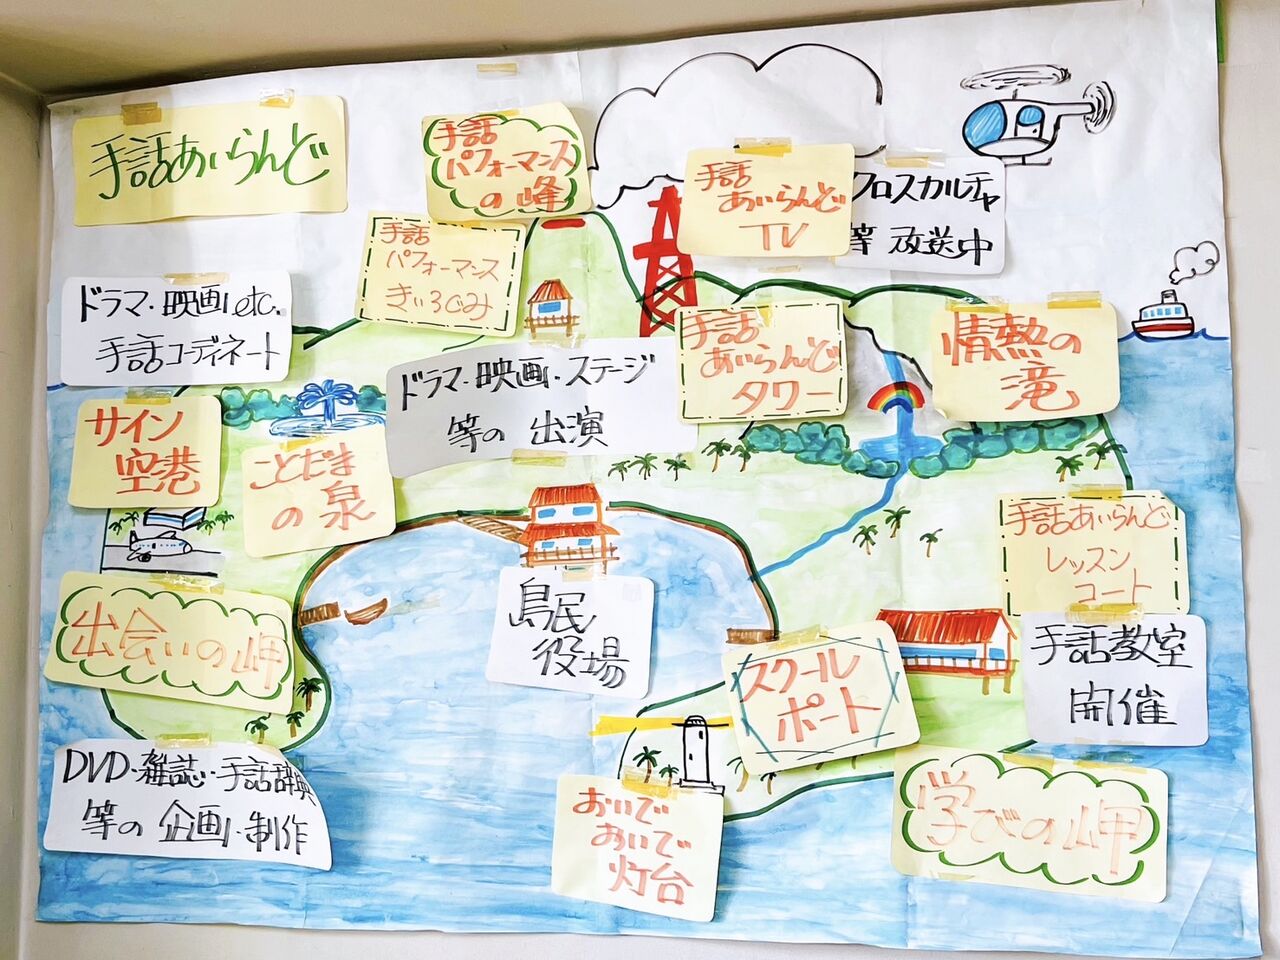 手話あいらんど
手話
パフォーマンス
の峰
手話
あいらんど
TV
クロスカルチャ
等 放送中
手話
パフォーマンス
きいろぐみ
ドラマ・映画etc.
手話コーディネート
ドラマ・映画・ステージ
等の 出演
手話
あいらんど
タワー
情熱の
滝
サイン
空港
ことだま
の泉
手話あいらんど
レッスン
コート
出会いの岬
島民
役場
スクール
ポート
手話教室
開催
DVD・雑誌・手話辞典
等の 企画・制作
おいで
おいで
灯台
学びの岬